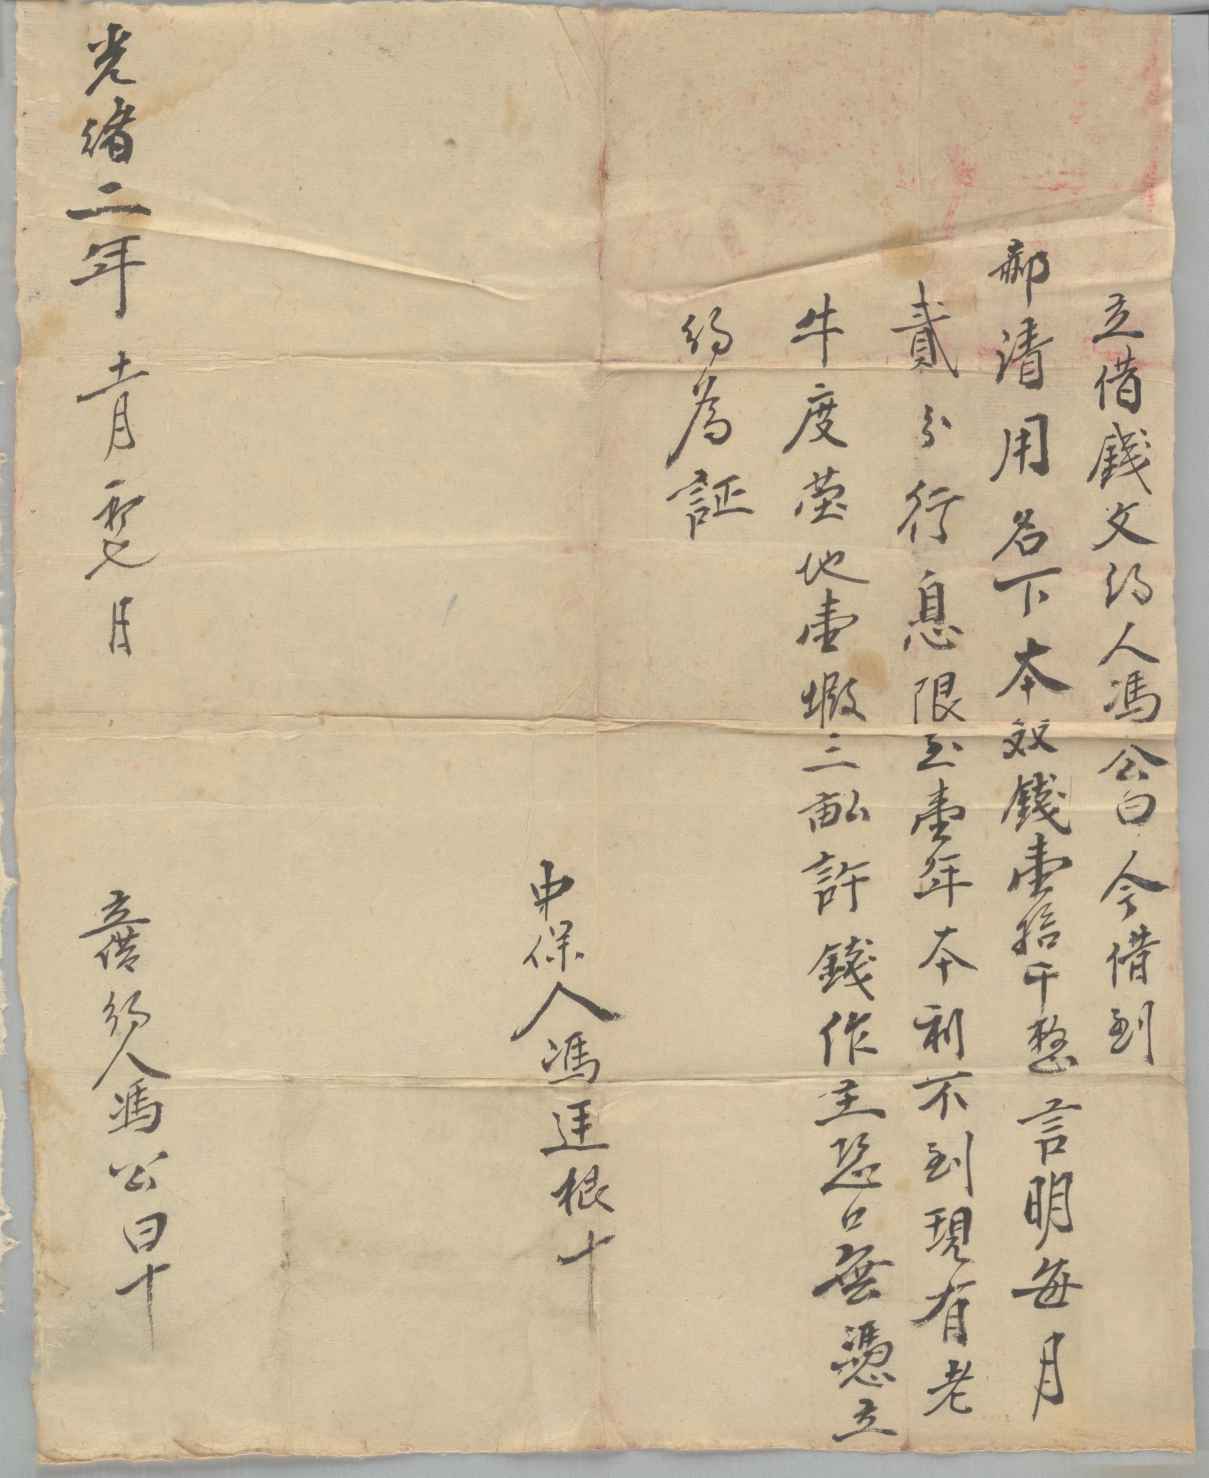 立借錢文约人馮公曰今借到
郝清用名下本奴錢壹拾千整言明每月
貳分行息限至壹年本利不到現有老
牛度塋地壹塅三畝許錢作主恐口無憑立
约為証
中保人馮廷根十
光绪二年十一月初七日
立借约人馮公曰十